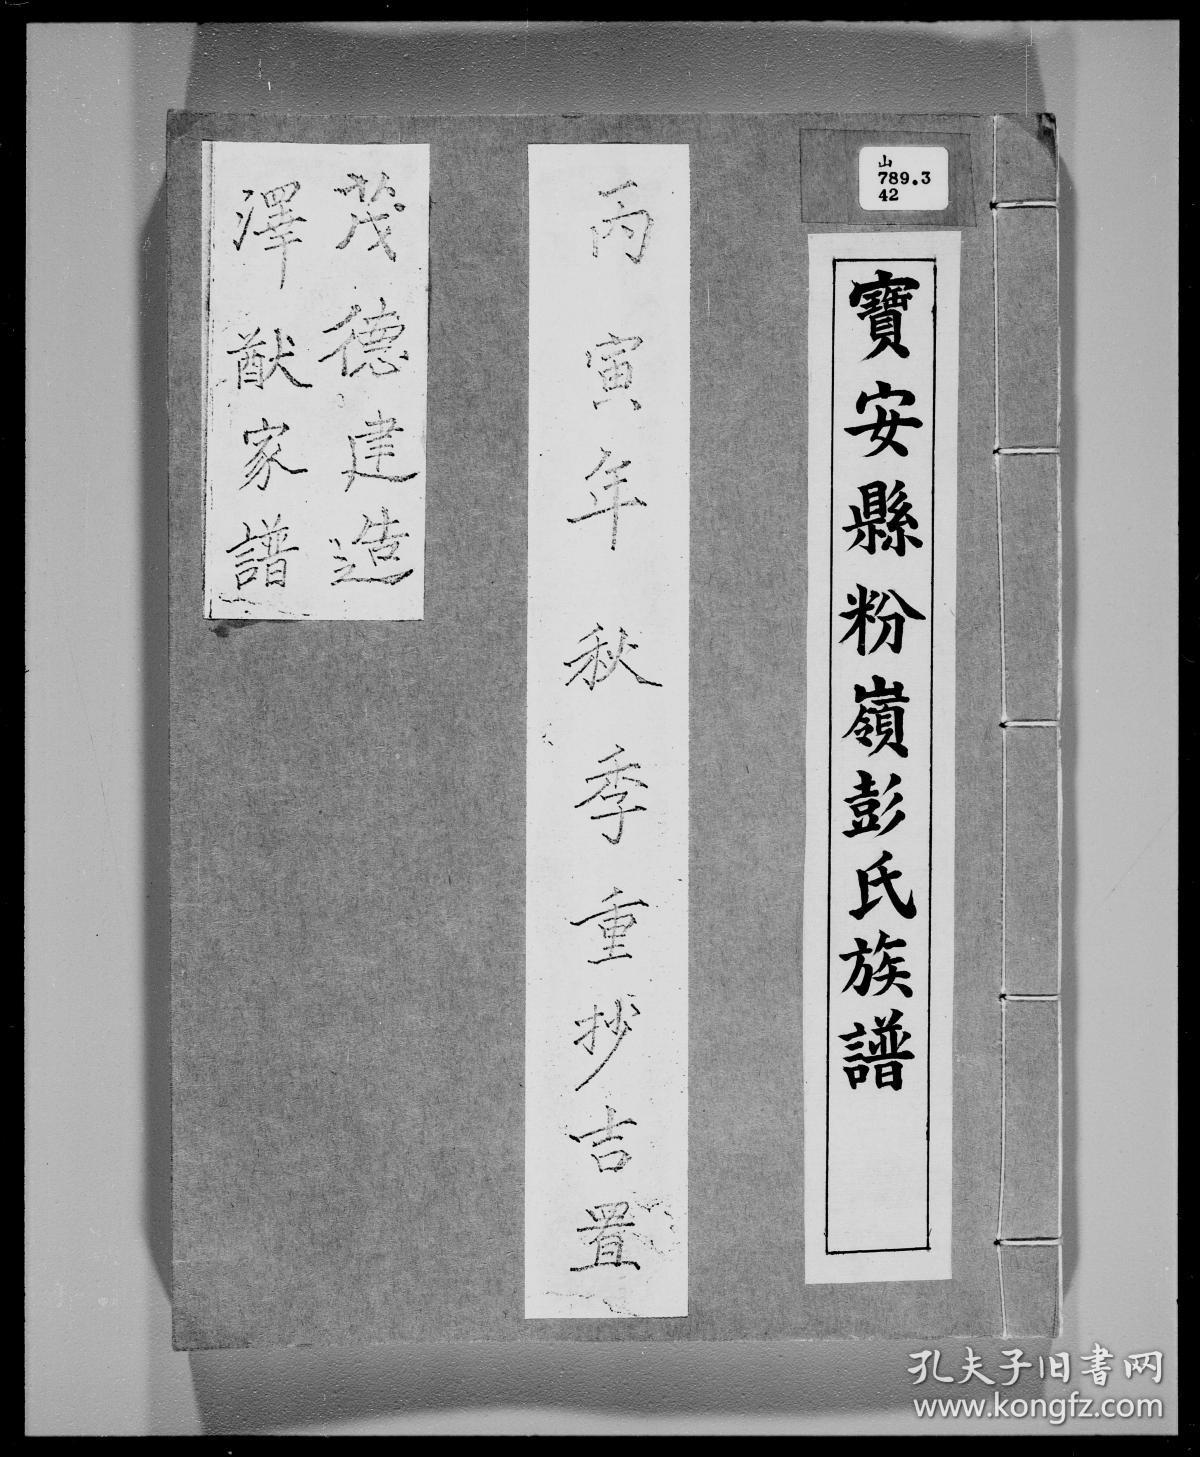 山
789.3
42
寶安縣粉嶺彭氏族譜
丙寅年秋季重抄吉置
茂德建造
澤猷家譜
孔夫子旧书网
www.kongfz.com